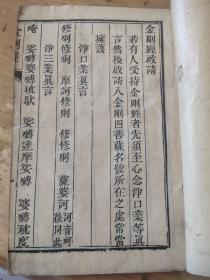 金剛經啟請
若有人受持金剛經者先須至心念淨口業等真
言然後啟請八金剛四菩薩名號所在之處常當
擁護
淨口業真言
修唎修唎　摩訶修唎　修修唎　薩婆訶
淨三業真言
唵　娑嚩婆嚩秫馱　娑嚩達摩娑嚩　婆嚩秫度